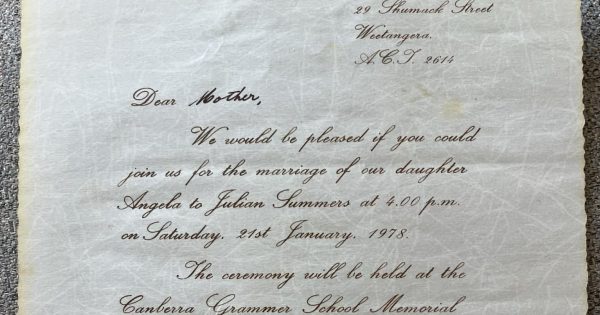 29 Shumack Street
Weetangera.
A.C.T. 2614
Dear Mother,
We would be pleased if you could
join us for the marriage of our daughter
Angela to Julian Summers at 4.00 p.m.
on Saturday, 21st January, 1978.
The ceremony will be held at the
Canberra Grammer School Memorial